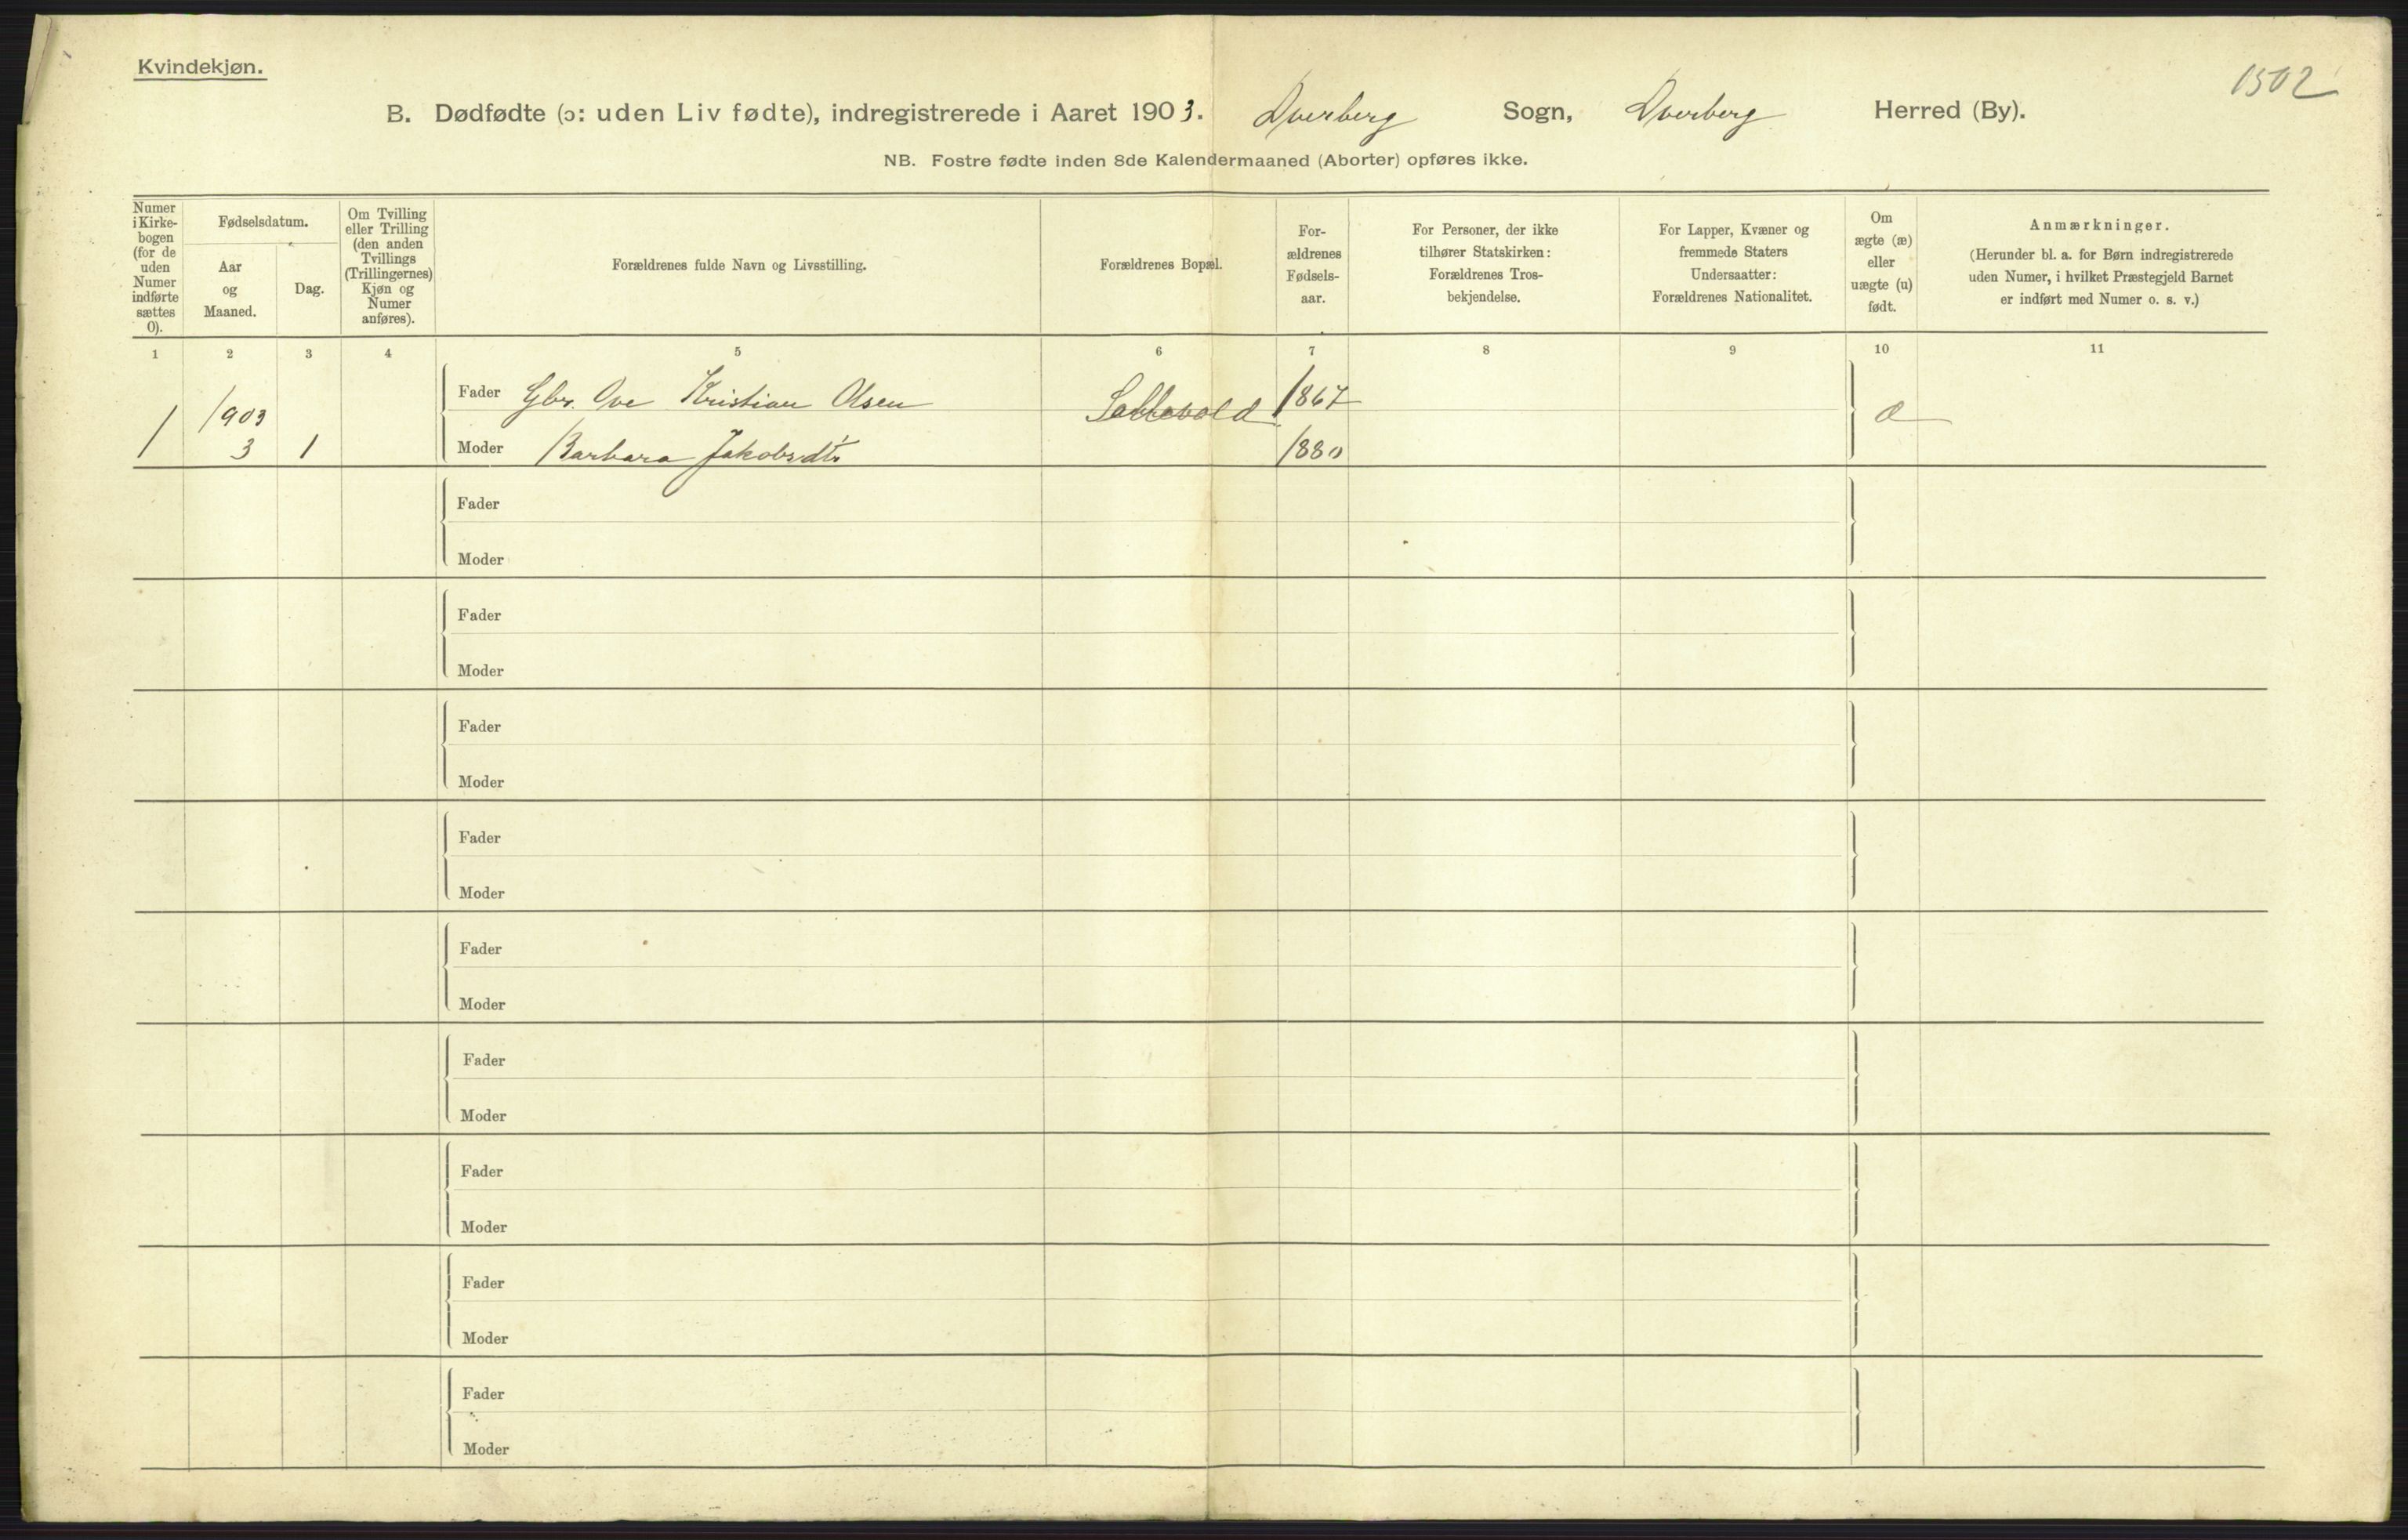 Kvindekjøn.
1502
B. Dødfødte (ɔ: uden Liv fødte), indregistrerede i Aaret 1903. Dverberg Sogn, Dverberg Herred (By).
NB. Fostre fødte inden 8de Kalendermaaned (Aborter) opføres ikke.
Numer
i Kirke-
bogen
(for de
uden
Numer
indførte
sættes
0).
Fødselsdatum.
Aar
og
Maaned.
Dag.
Om Tvilling
eller Trilling
(den anden
Tvillings
(Trillingernes)
Kjøn og
Numer
anføres).
Forældrenes fulde Navn og Livsstilling.
Forældrenes Bopæl.
For-
ældrenes
Fødsels-
aar.
For Personer, der ikke
tilhører Statskirken:
Forældrenes Tros-
bekjendelse.
For Lapper, Kvæner og
fremmede Staters
Undersaatter:
Forældrenes Nationalitet.
Om
ægte (æ)
eller
uægte (u)
født.
Anmærkninger.
(Herunder bl. a. for Børn indregistrerede
uden Numer, i hvilket Præstegjeld Barnet
er indført med Numer o. s. v.)
1 2 3 4 5 6 7 8 9 10 11
Fader Gbr. Ove Kristian Olsen 1867
1 1903 æ
3 1 Moder Barbara Jakobsdtr 1880
Fader
Moder
Fader
Moder
Fader
Moder
Fader
Moder
Fader
Moder
Fader
Moder
Fader
Moder
Fader
Moder
Fader
Moder